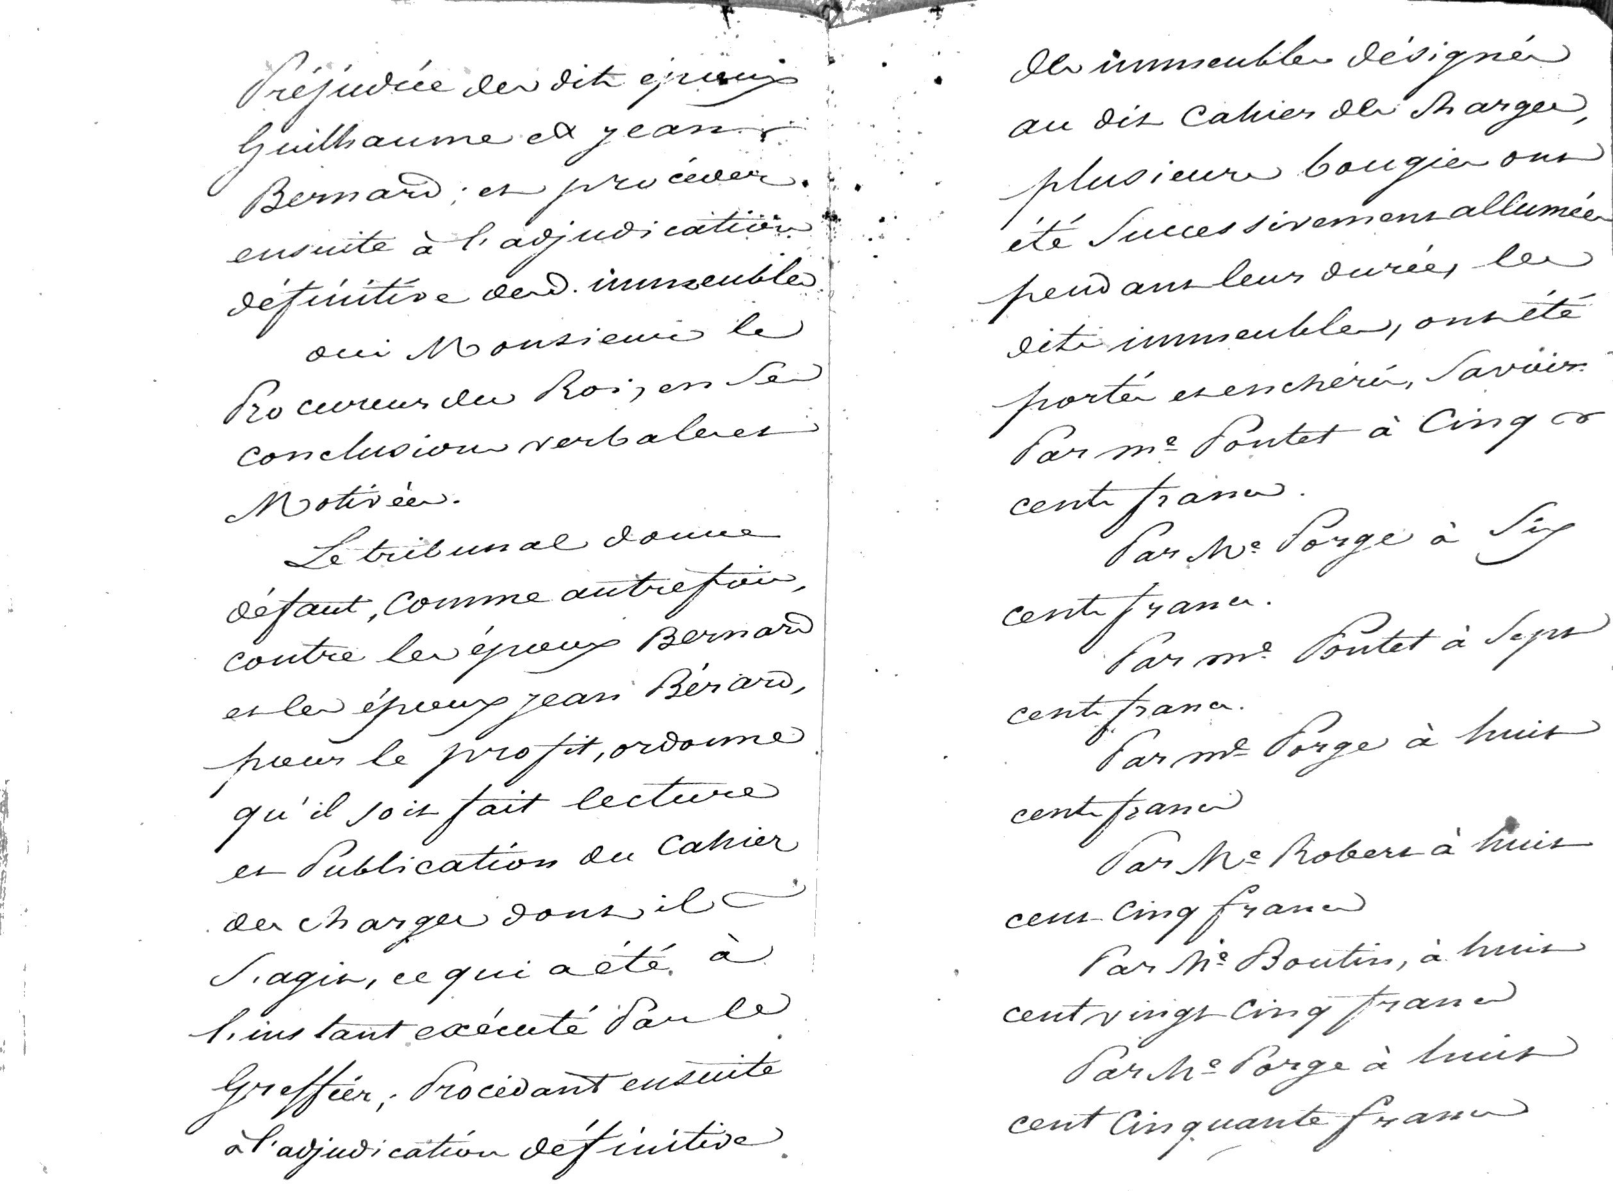 Préjudice des dits époux
Guilhaume et jean
Bernard; et procéder
ensuite à l'adjudication
définitive desd. immeubles
oui Monsieur le
Procureur du Roi, en Ses
conclusions verbales et
Motivées.
Le tribunal donne
défaut, comme autrefois,
contre les époux Bernard
et les époux jean Bérard,
pour le profit, ordonne
qu'il soit fait lecture
et Publication du Cahier
des charges dont il
S'agit, ce qui a été à
l'instant exécuté Par le
Greffier; Procédant ensuite
à l'adjudication définitive
des immeubles désignés
au dit Cahier des Charges,
plusieurs bougies ont
été Successivement allumées
pendant leur durée, les
dits immeubles, ont été
portés et enchéris, Savoir:
Par me Pontet à Cinq
cents francs.
Par Me Porge à Six
cents francs.
Par me Pontet à Sept
cents francs.
Par me Porge à huit
cents francs
Par Me Robert à huit
cent cinq francs
Par Me Boutin, à huit
cent vingt cinq francs
Par Me Porge à huit
cent Cinquante francs